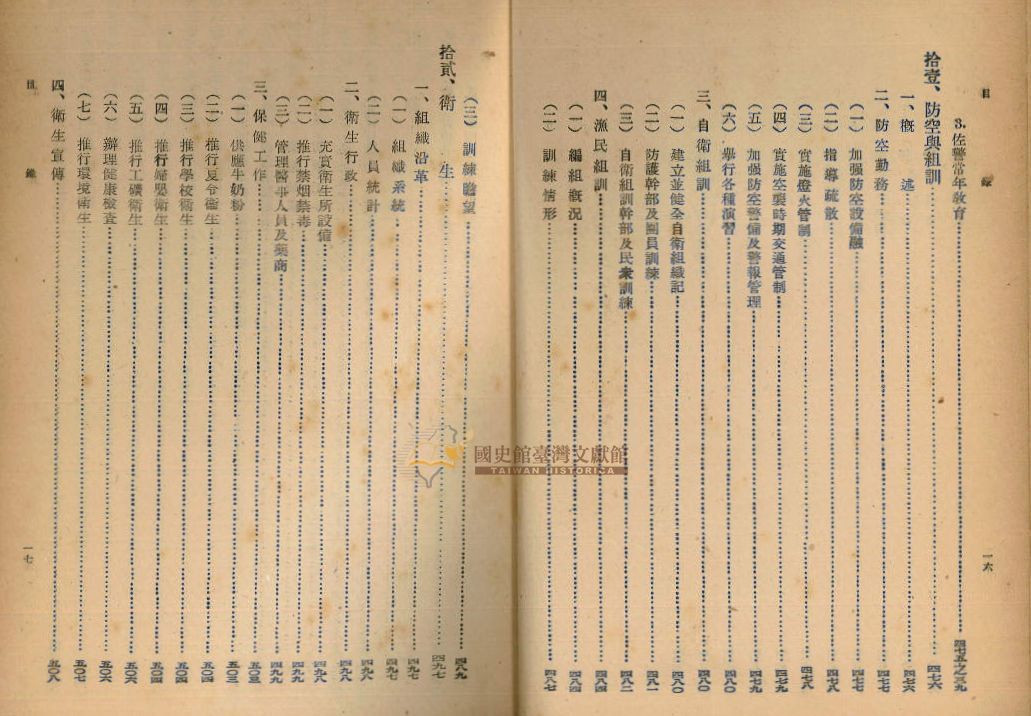 目錄
3. 佐警常年教育 四七五之三九
拾壹、防空與組訓 四七六
一、概述 四七六
二、防空勤務 四七七
（一）加强防空設備融 四七七
（二）指導疏散 四七八
（三）實施燈火管制 四七八
（四）實施空襲時期交通管制 四七九
（五）加强防空警備及警報管理 四七九
（六）舉行各種演習 四八〇
三、自衛組訓 四八〇
（一）建立並健全自衛組織記 四八〇
（二）防護幹部及團員訓練 四八一
（三）自衛組訓幹部及民衆訓練 四八二
四、漁民組訓 四八四
（一）編組概況 四八四
（二）訓練情形 四八七
一六
（三）訓練瞻望 四八九
拾貳、衛生 四九七
一、組織沿革 四九七
（一）組織系統 四九七
（二）人員統計 四九八
二、衛生行政 四九八
（一）充實衛生所設備 四九八
（二）推行禁烟禁毒 四九九
（三）管理醫事人員及藥商 四九九
三、保健工作 五〇三
（一）供應牛奶粉 五〇三
（二）推行夏令衛生 五〇四
（三）推行學校衛生 五〇四
（四）推行婦嬰衛生 五〇四
（五）推行工礦衛生 五〇六
（六）辦理健康檢査 五〇六
（七）推行環境衛生 五〇七
四、衛生宣傳 五〇八
目錄
一七
國史館臺灣文獻館
TAIWAN HISTORICA